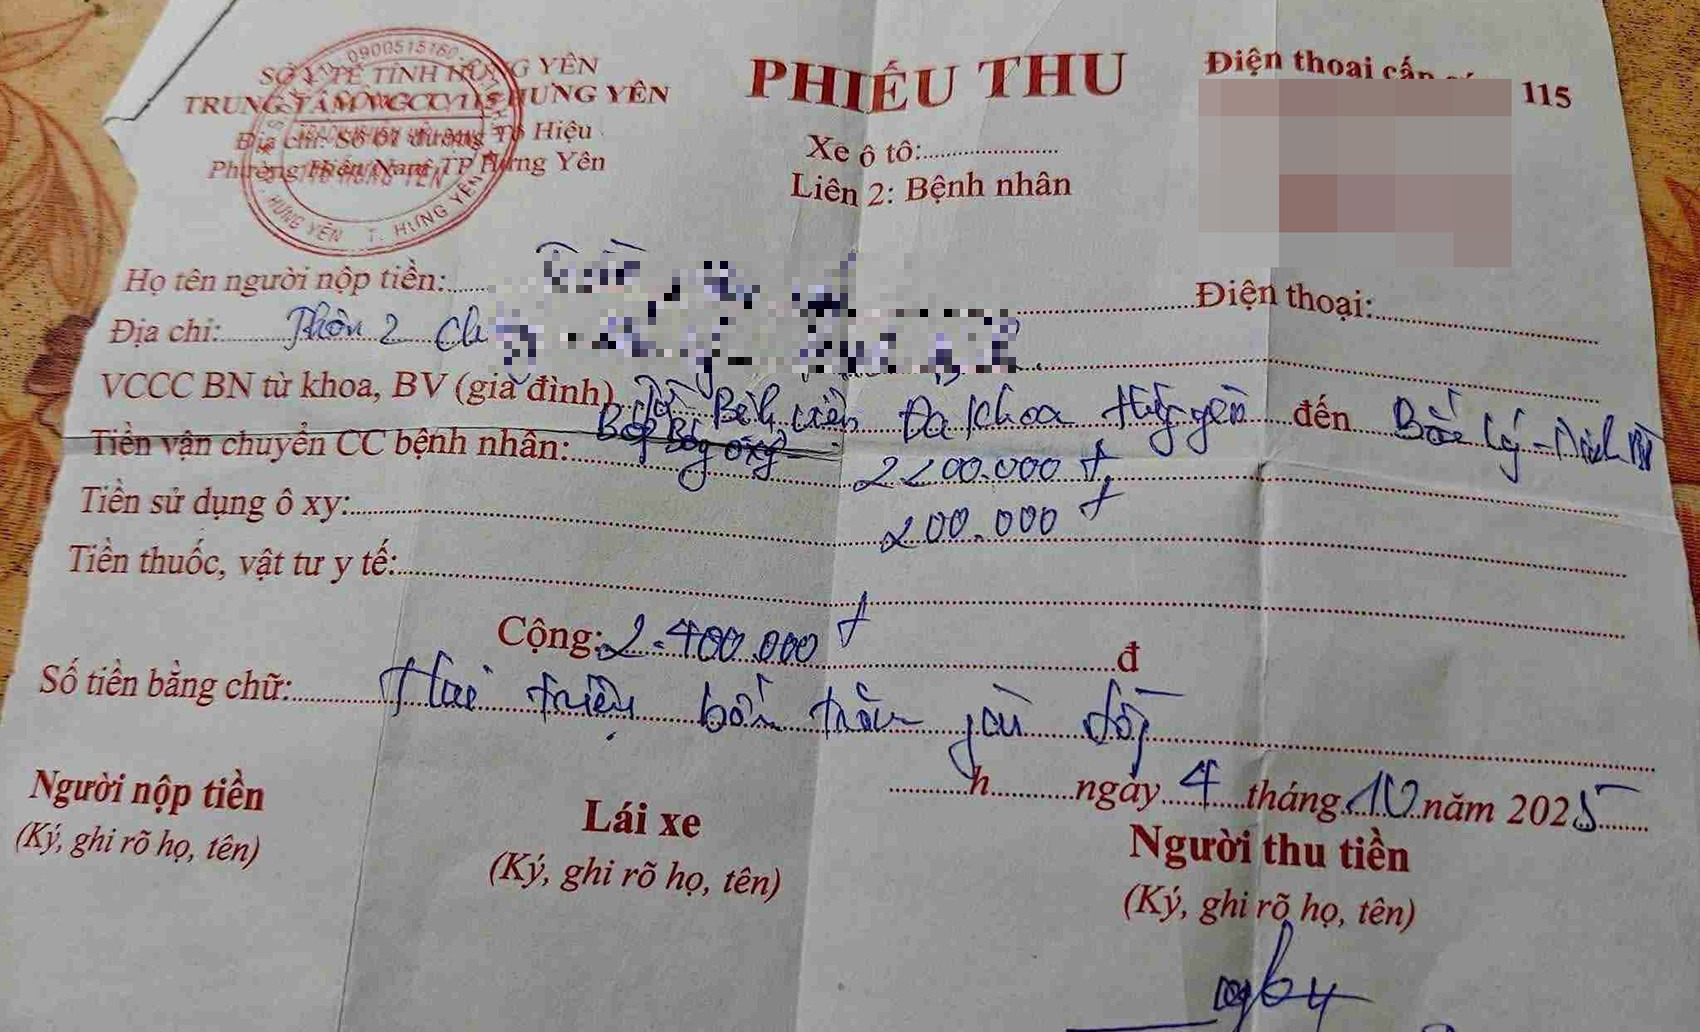 SỞ Y TẾ TỈNH HƯNG YÊN
TRUNG TÂM HƯNG YÊN
Địa chỉ: Số 01 đường Tô Hiệu
Phường Hiến Nam TP Hưng Yên
0900515160
HƯNG YÊN T. HƯNG YÊN
PHIẾU THU
Xe ô tô:
Liên 2: Bệnh nhân
Điện thoại cấp 115
Họ tên người nộp tiền:
Điện thoại:
Địa chỉ: Thôn 2
VCCC BN từ khoa, BV (gia đình) Từ Bệnh viện Đa khoa Hưng yên đến
Tiền vận chuyển CC bệnh nhân: Bóp Bóng oxy 2200.000 đ
Tiền sử dụng ô xy: 200.000 đ
Tiền thuốc, vật tư y tế:
Cộng: 2.400.000 đ đ
Số tiền bằng chữ: Hai triệu bốn trăm đồng
h ngày 4 tháng 10 năm 2025
Người nộp tiền
(Ký, ghi rõ họ, tên)
Lái xe
(Ký, ghi rõ họ, tên)
Người thu tiền
(Ký, ghi rõ họ, tên)